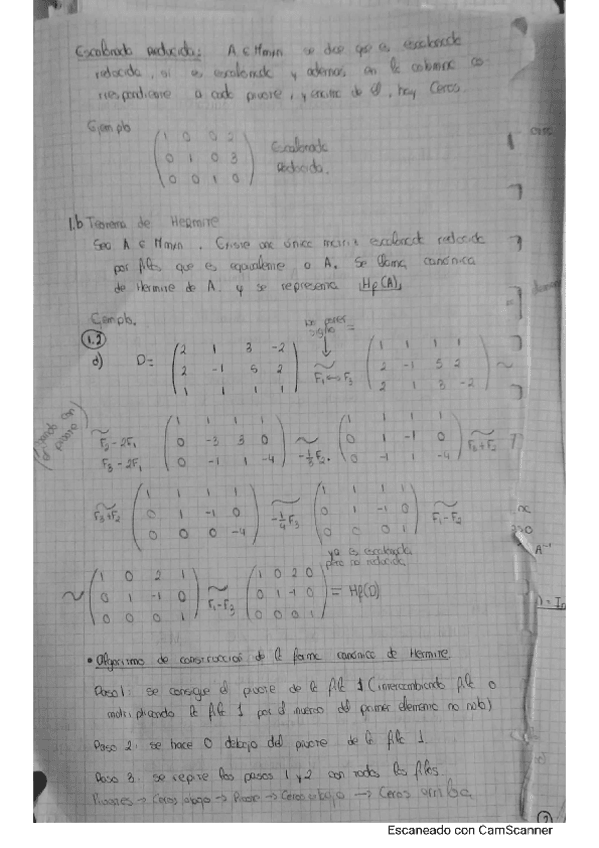 Escalonada Reducida: A ∈ Mmxn se dice que es escalonada
reducida, si es escalonada y además en la columna co-
rrespondiente a cada pivote, y encima de él, hay ceros.
Ejemplo
(1 0 0 2
0 1 0 3
0 0 1 0)
Escalonada
Reducida.
1.b Teorema de Hermite
Sea A ∈ Mmxn. Existe una única matriz escalonada reducida
por filas que es equivalente a A. Se llama canónica
de Hermite de A y se representa Hf(A).
Ejemplo.
1.2
d) D= (2 1 3 -2
2 -1 5 2
1 1 1 1) ~ F1↔F3 (1 1 1 1
2 -1 5 2
2 1 3 -2) ~
~ F2-2F1
F3-2F1 (1 1 1 1
0 -3 3 0
0 -1 1 -4) ~ -1/3 F2. (1 1 1 1
0 1 -1 0
0 -1 1 -4) ~ F3+F2
~ F3+F2 (1 1 1 1
0 1 -1 0
0 0 0 -4) ~ -1/4 F3 (1 1 1 1
0 1 -1 0
0 0 0 1) ~ F1-F2
ya es escalonada
pero no reducida
~ (1 0 2 1
0 1 -1 0
0 0 0 1) ~ F1-F3 (1 0 2 0
0 1 -1 0
0 0 0 1) = Hf(D)
• Algoritmo de construcción de la forma canónica de Hermite.
Paso 1: se consigue el pivote de la fila 1 (intercambiando fila o
multiplicando la fila 1 por el inverso del primer elemento no nulo)
Paso 2: se hace 0 debajo del pivote de la fila 1.
Paso 3: se repite los pasos 1 y 2 con todas las filas.
Pivotes → Ceros abajo → Pivote → Ceros abajo → Ceros arriba
Escaneado con CamScanner